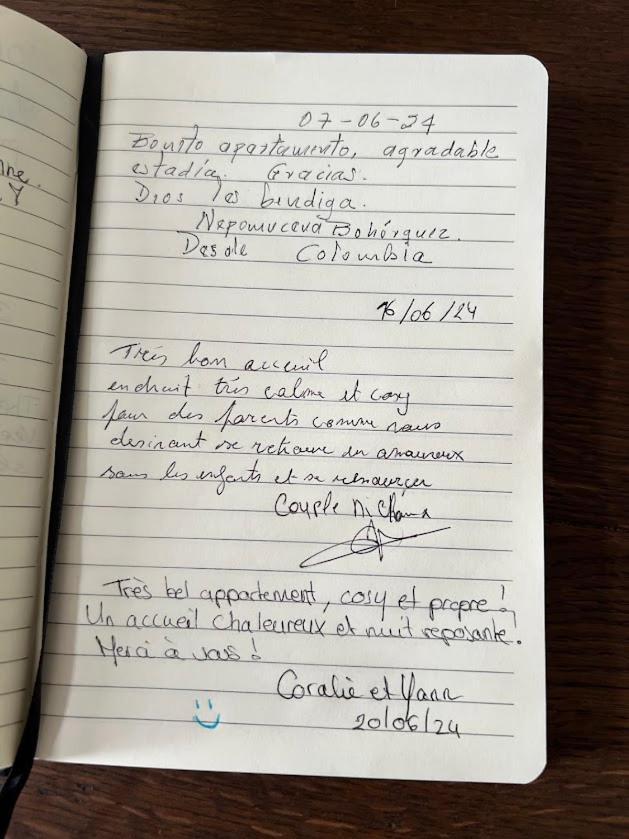 07-06-24
Bonito apartamento, agradable
estadía. Gracias.
Dios les bendiga.
Nepomuceva Bohórquez.
Desde Colombia
16/06/24
Trés bon acceuil
endruit trés calme et cosy
pour des parents comme nous
desirant se retrouve en amoureux
sans les enfants et se ressourçer
Couple
Très bel appartement, cosy et propre !
Un accueil chaleureux et nuit reposante.
Merci à vous !
Coralie et Yann
20/06/24